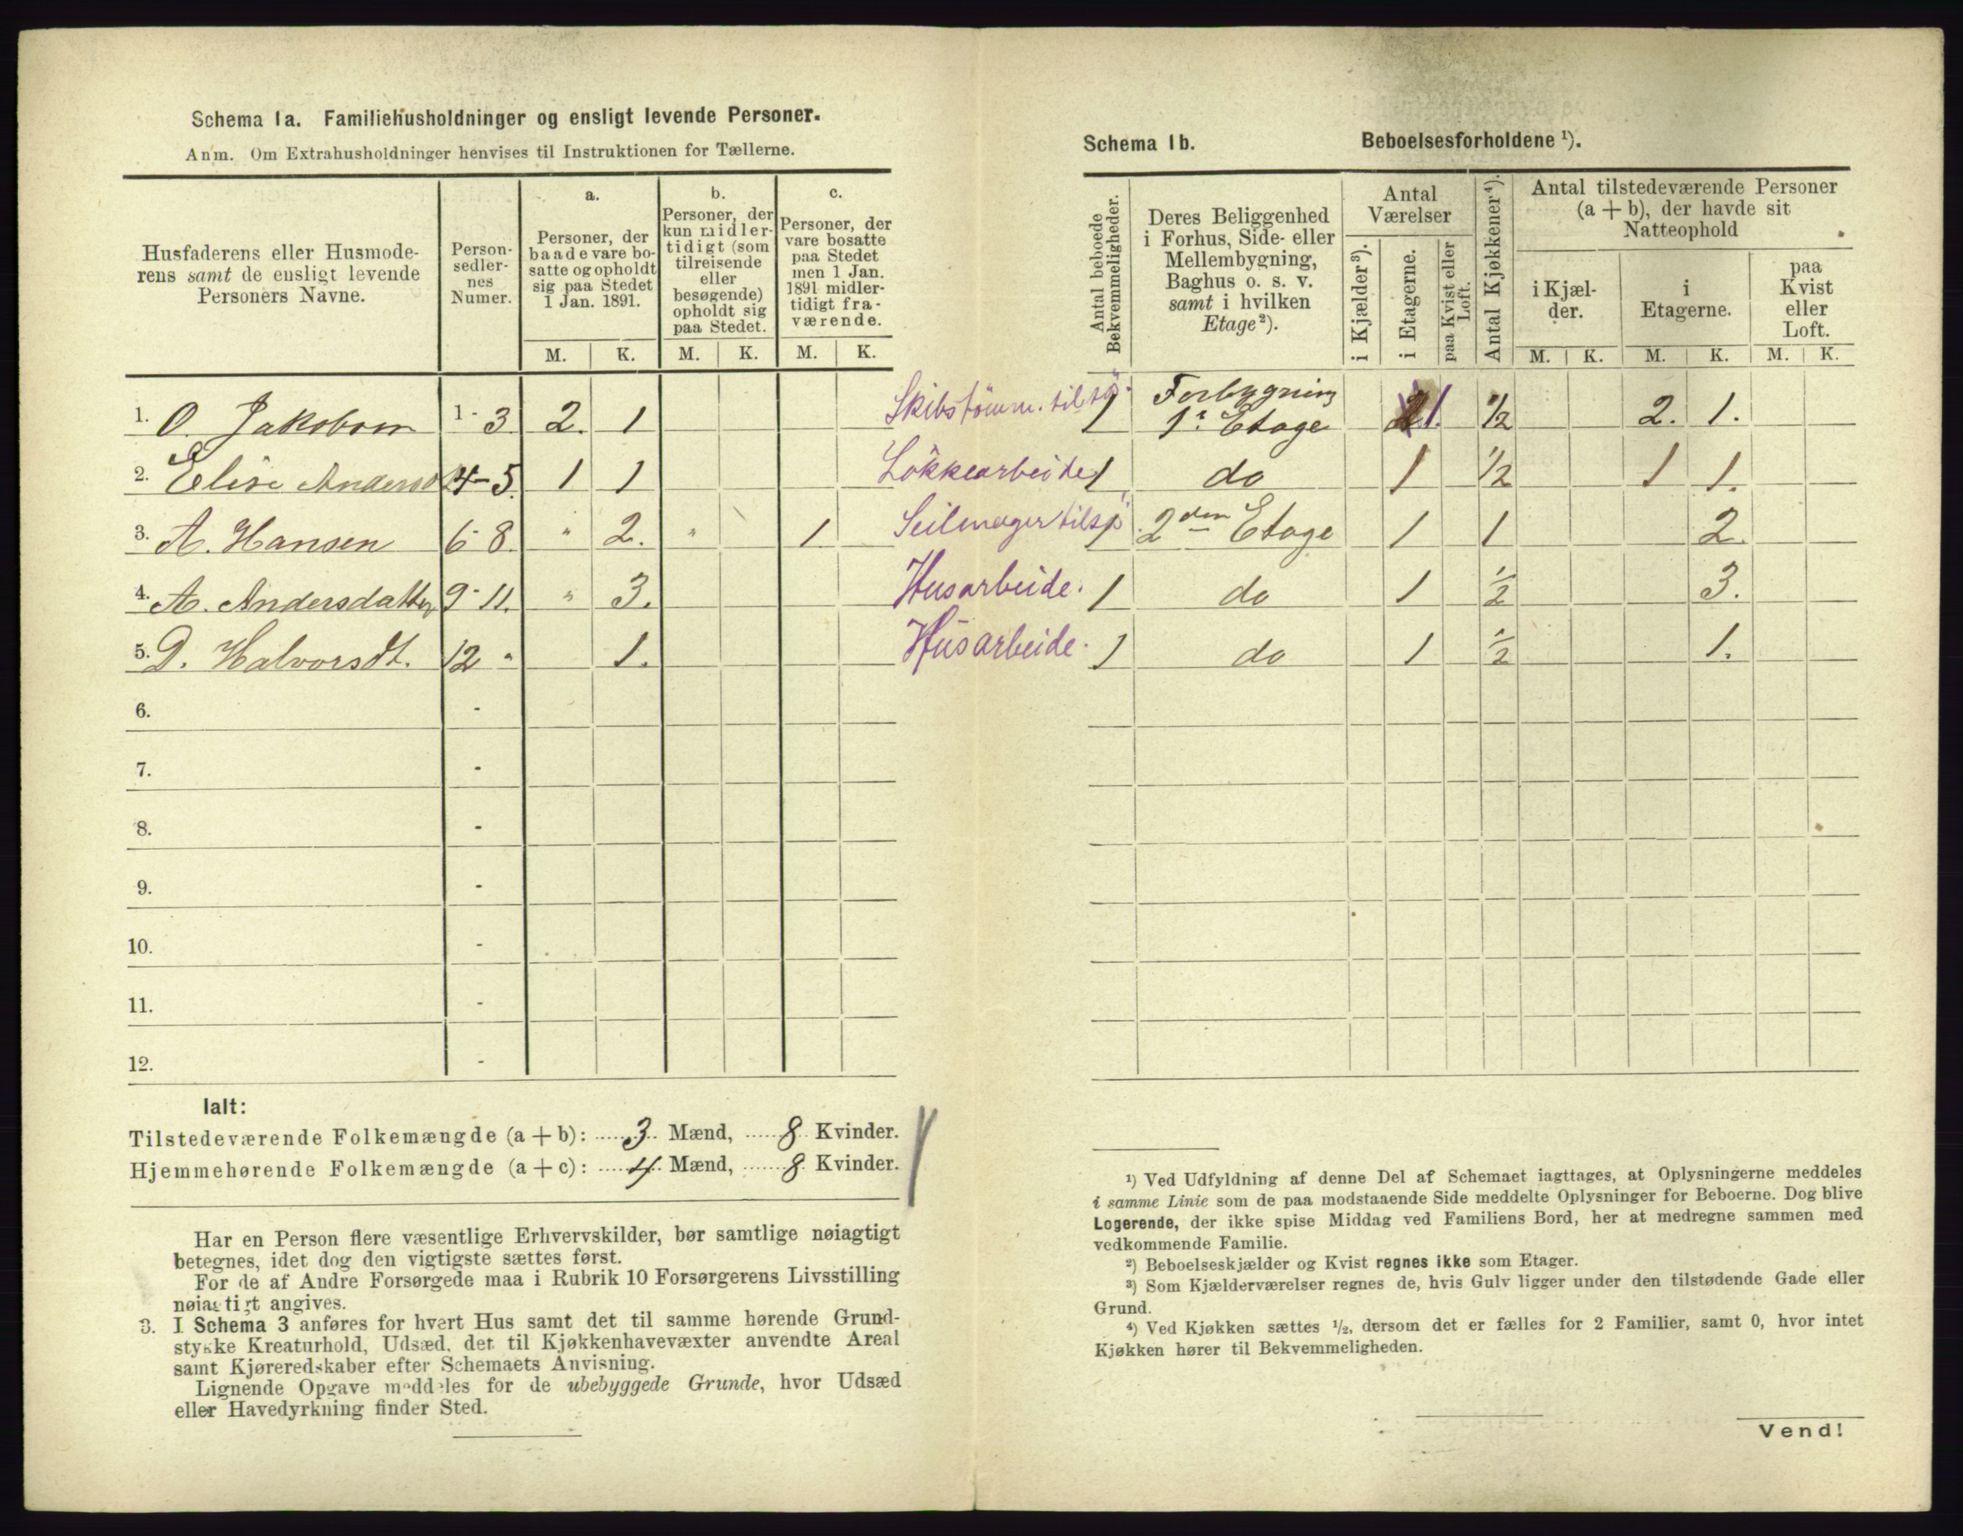 Schema 1a. Familiehusholdninger og ensligt levende Personer.
Anm. Om Extrahusholdninger henvises til Instruktionen for Tællerne.
Husfaderens eller Husmoderens samt de ensligt levende Personers Navne.
Personsedlernes Numer.
a. Personer, der baade vare bosatte og opholdt sig paa Stedet 1 Jan. 1891.
b. Personer, der kun midlertidigt (som tilreisende eller besøgende) opholdt sig paa Stedet.
c. Personer, der vare bosatte paa Stedet men 1 Jan. 1891 midlertidigt fraværende.
M. K. M. K. M. K.
1. O. Jakobsen 1 - 3. 2. 1
2. Elise Andersd 4 - 5. 1 1
3. A. Hansen 6 - 8. " 2. " 1
4. A. Andersdatter 9 - 11. " 3.
5. D. Halvorsdt. 12 - 1.
6. -
7. -
8. -
9. -
10. -
11. -
12. -
Ialt:
Tilstedeværende Folkemængde (a + b): 3 Mænd, 8 Kvinder.
Hjemmehørende Folkemængde (a + c): 4 Mænd, 8 Kvinder.
Har en Person flere væsentlige Erhvervskilder, bør samtlige nøiagtigt
betegnes, idet dog den vigtigste sættes først.
For de af Andre Forsørgede maa i Rubrik 10 Forsørgerens Livsstilling
nøiagtigt angives.
3. I Schema 3 anføres for hvert Hus samt det til samme hørende Grund-
stykke Kreaturhold, Udsæd, det til Kjøkkenhavevæxter anvendte Areal
samt Kjøreredskaber efter Schemaets Anvisning.
Lignende Opgave meddeles for de ubebyggede Grunde, hvor Udsæd
eller Havedyrkning finder Sted.
Schema 1b. Beboelsesforholdene ¹).
Antal beboede Bekvemmeligheder.
Deres Beliggenhed i Forhus, Side- eller Mellembygning, Baghus o. s. v. samt i hvilken Etage²).
Antal Værelser
i Kjælder³).
i Etagerne.
paa Kvist eller Loft.
Antal Kjøkkener⁴).
Antal tilstedeværende Personer (a + b), der havde sit Natteophold
i Kjælder.
i Etagerne.
paa Kvist eller Loft.
M. K. M. K. M. K.
Skibstömm. tilsö. 1 Forbygning 1ˢ Etage 1. ½ 2. 1.
Lökkearbeide 1 do 1 ½ 1 1.
Seilmager tilsö 1 2den Etage 1 1 2.
Husarbeide. 1 do 1 ½ 3.
Husarbeide. 1 do 1 ½ 1.
¹) Ved Udfyldning af denne Del af Schemaet iagttages, at Oplysningerne meddeles
i samme Linie som de paa modstaaende Side meddelte Oplysninger for Beboerne. Dog blive
Logerende, der ikke spise Middag ved Familiens Bord, her at medregne sammen med
vedkommende Familie.
²) Beboelseskjælder og Kvist regnes ikke som Etager.
³) Som Kjælderværelser regnes de, hvis Gulv ligger under den tilstødende Gade eller
Grund.
⁴) Ved Kjøkken sættes ½, dersom det er fælles for 2 Familier, samt 0, hvor intet
Kjøkken hører til Bekvemmeligheden.
Vend!